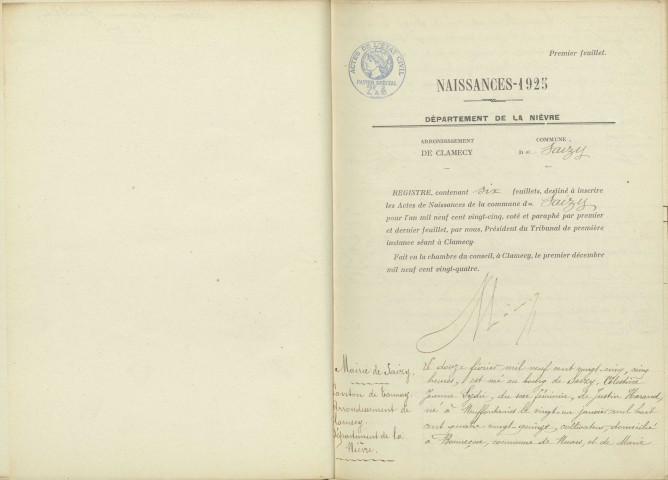 Premier feuillet.
ACTES DE L'ETAT CIVIL
PAPIER SPÉCIAL
NAISSANCES-1925
DÉPARTEMENT DE LA NIÈVRE
ARRONDISSEMENT
DE CLAMECY
COMMUNE
D e Saizy
REGISTRE, contenant six feuillets, destiné à inscrire
les Actes de Naissances de la commune de Saizy
pour l'an mil neuf cent vingt-cinq, coté et paraphé par premier
et dernier feuillet, par nous, Président du Tribunal de première
instance séant à Clamecy
Fait en la chambre du conseil, à Clamecy, le premier décembre
mil neuf cent vingt-quatre.
Mairie de Saizy.
Canton de Tannay
Arrondissement de
Clamecy.
Département de la
Nièvre.
Le douze février mil neuf cent vingt-cinq, cinq
heures, est née au bourg de Saizy, Célestine
Jeanne Lydie, du sexe féminin, de Justin
né à Neuffontaines le vingt-un janvier mil huit
cent quatre-vingt-quinze, cultivateur, domicilié
à commune de Nuars, et de Marie